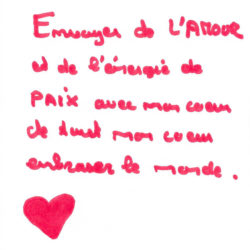 Envoyer de L'AMOUR
et de l'énergie de
PAIX avec mon coeur
de tout mon coeur
embrasser le monde.